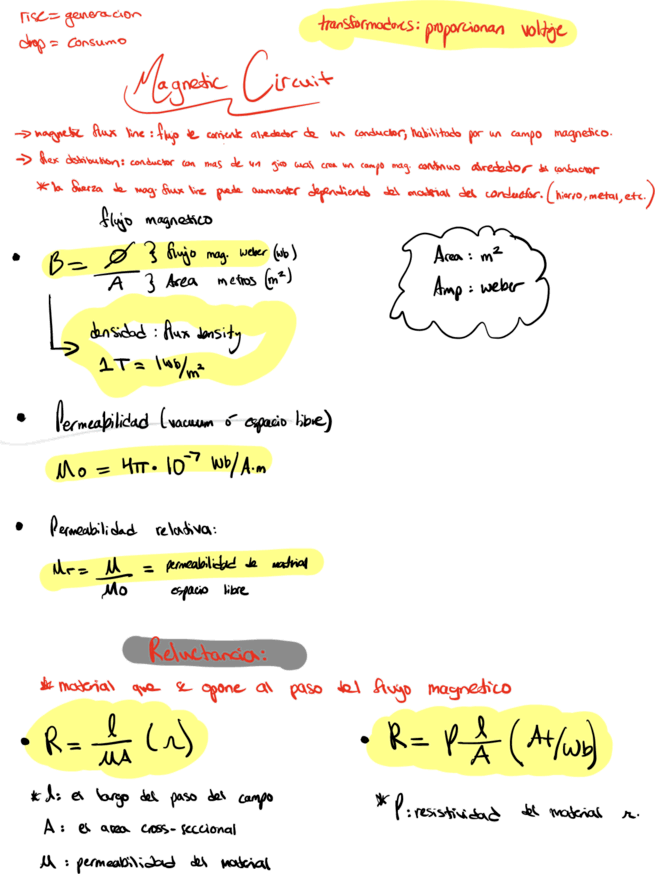 rise = generacion
drop = consumo
transformadores: proporcionan voltije
Magnetic Circuit
→ magnetic flux line: flujo de corriente alrededor de un conductor, habilitado por un campo magnetico.
→ flex distribution: conductor con mas de un giro cual crea un campo mag. continuo alrededor del conductor
* la fuerza de mag flux line puede aumentar dependiendo del material del conductor. (hierro, metal, etc.)
flujo magnetico
• B = Ø/A } flujo mag. weber (wb)
} Area metros (m²)
densidad: flux density
1T = 1wb/m²
Area: m²
Amp: weber
• Permeabilidad (vacuum ó espacio libre)
Mo = 4π · 10⁻⁷ Wb/A·m
• Permeabilidad relativa:
Mr = M/Mo = permeabilidad de material
espacio libre
Reluctancia:
* material que se opone al paso del flujo magnetico
• R = l/MA (r)
* l: es largo del paso del campo
A: es area cross-seccional
M: permeabilidad del material
• R = P l/A (At/wb)
* P: resistividad del material r.